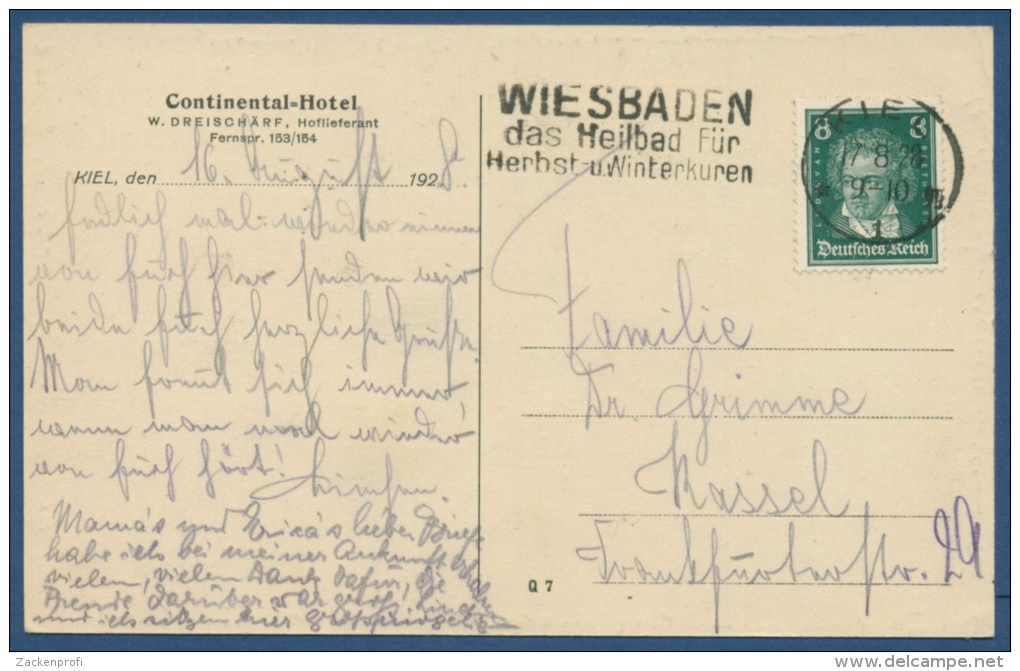 Continental-Hotel
W. DREISCHÄRF, Hoflieferant
Fernspr. 153/154
KIEL, den 16. August 1928.
Endlich mal wieder einmal
von Euch hier senden wir
beide Euch herzliche Grüße.
Man freut sich immer
wenn man mal wieder
von Euch hört!
Mama's und Erica's lieber Brief
habe ich bei meiner Ankunft
vielen, vielen Dank dafür, die
Freude darüber war groß,
und ich sitzen hier
WIESBADEN
das Heilbad für
Herbst-u.Winterkuren
KIEL
17.8.28
9-10
1
8 8
LUDWIG VAN BEETHOVEN
Deutsches Reich
Familie
Dr. Grimme
Kassel
Frankfurterstr. 29.
Q 7
Zackenprofi
delcampe.net